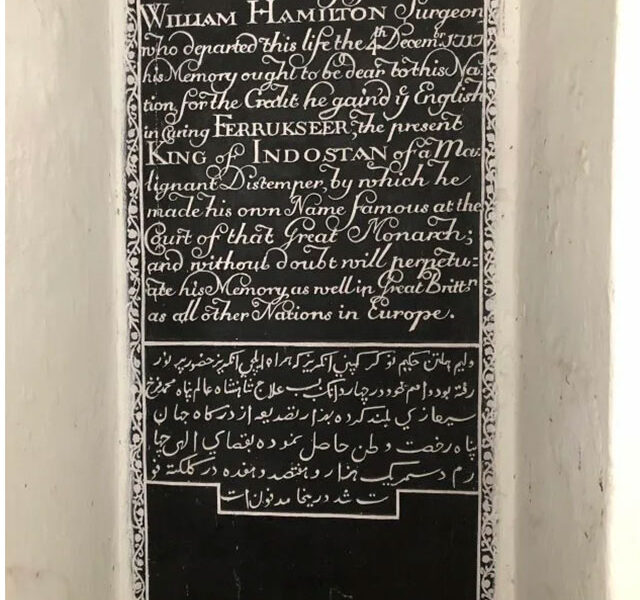 WILLIAM HAMILTON Surgeon
who departed this life the 4th Decemr. 1717
his Memory ought to be dear to this Na-
tion, for the Credit he gaind ye English
in Curing FERRUKSEER, the present
KING of INDOSTAN of a Ma-
lignant Distemper, by which he
made his own Name famous at the
Court of that Great Monarch;
and without doubt will perpetu-
ate his Memory, as well in Great Brittn
as all other Nations in Europe.
ولیم هملتن حکیم نوکر کمپنی انگریز که همراه ایلچی انگریز حضور پر نور
رفته بود و اسم خود در چهار دانگ بسبب علاج شاهنشاه عالم پناه محمد فرخ
سیر غازی بلند کرده بهزار تصدیعه از درگاه جهان
پناه رخصت وطن حاصل نموده بقضای الهی چها
رم دسمبر یک هزار و هفتصد و هفده در کلکته فو
ت شد درینجا مدفون است